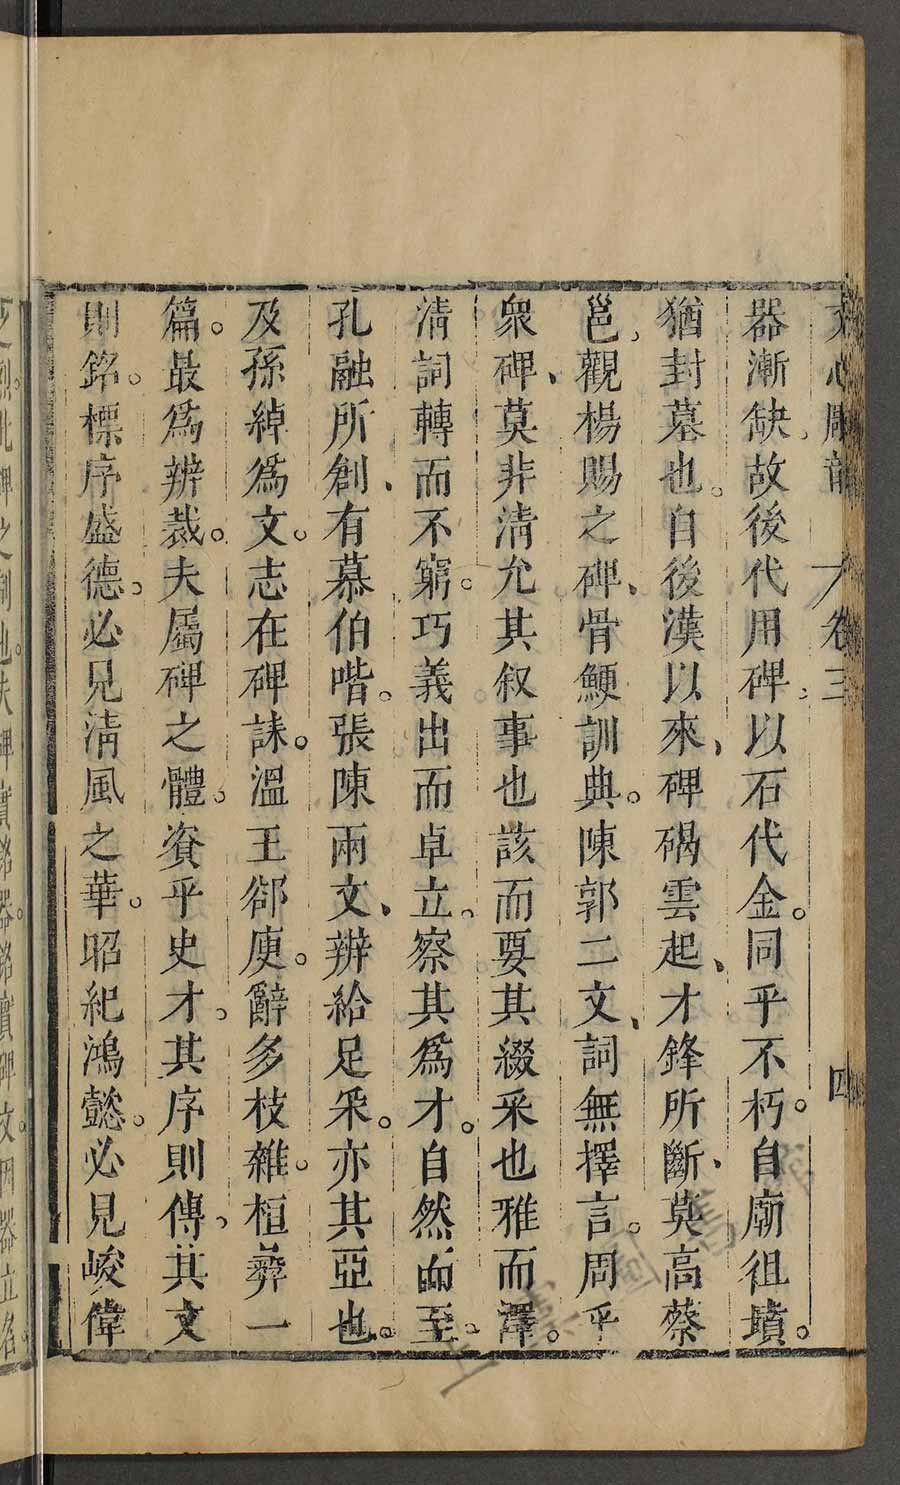 文心雕龍 卷三 四
器漸缺故後代用碑以石代金。同乎不朽。自廟徂墳。
猶封墓也。自後漢以來、碑碣雲起、才鋒所斷、莫高蔡
邕、觀楊賜之碑、骨鯁訓典。陳郭二文、詞無擇言。周乎
衆碑、莫非清允其叙事也該而要其綴采也雅而澤。
清詞轉而不窮。巧義出而卓立。察其爲才。自然而至。
孔融所創、有慕伯喈。張陳兩文、辨給足采。亦其亞也。
及孫綽爲文。志在碑誄。溫王郤庾。辭多枝雜。桓彝一
篇。最爲辨裁。夫屬碑之體。資乎史才。其序則傳。其文
則銘。標序盛德。必見清風之華。昭紀鴻懿。必見峻偉
之烈。此碑之制也。夫碑實銘器。銘實碑文。因器立名。